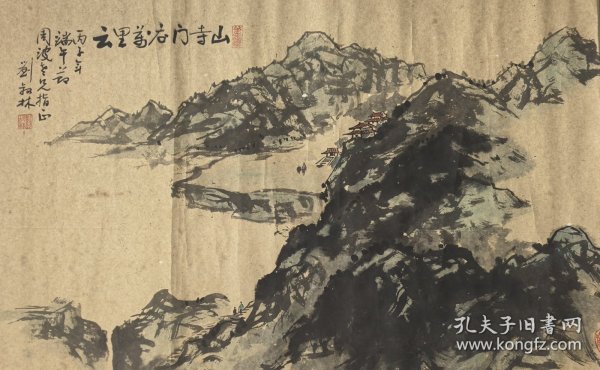 山寺门萬里云
丙子年
端午节
周波兄指正
劉林
孔夫子旧书网
www.kongfz.com